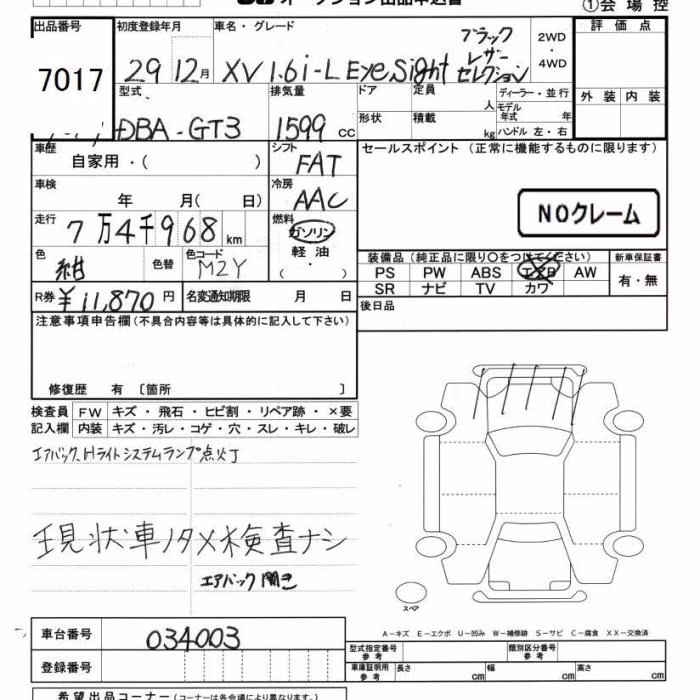 オークション出品申込書
①会場控
出品番号 初度登録年月 車名・グレード 評価点
7017 29 12月 XV 1.6i-L EyeSight ブラックレザーセレクション 2WD・4WD
型式 排気量 ドア 定員 人 ディーラー・並行 外装 内装
DBA-GT3 1599cc 形状 積載 kg モデル年式 年 ハンドル 左・右
車歴 自家用・( ) シフト FAT セールスポイント(正常に機能するものに限ります)
車検 年 月( 日) 冷房 AAC
NOクレーム
走行 7万4千968km 燃料 ガソリン 軽油・( ・ )
色 紺 色替 色コード M2Y
装備品(純正品に限り○をつけてください) 新車保証書
PS PW ABS エアB AW 有・無
SR ナビ TV カワ
R券 ¥11,870円 名変通知期限 月 日
後日品
注意事項申告欄(不具合内容等は具体的に記入して下さい)
修復歴 有 〔箇所 〕
検査員 FW キズ・飛石・ヒビ割・リペア跡・×要
記入欄 内装 キズ・汚レ・コゲ・穴・スレ・キレ・破レ
エアバック、Hライトシステムランプ点灯
現状車ノタメ検査ナシ
エアバック開き
スペア
A-キズ E-エクボ U-凹み W-補修跡 S-サビ C-腐食 XX-交換済
車台番号 034003
型式指定番号 参考 類別区分番号 参考
登録番号
車庫証明用 参考 長さ cm 幅 cm 高さ cm
希望出品コーナー(コーナーは各会場により異なります。)